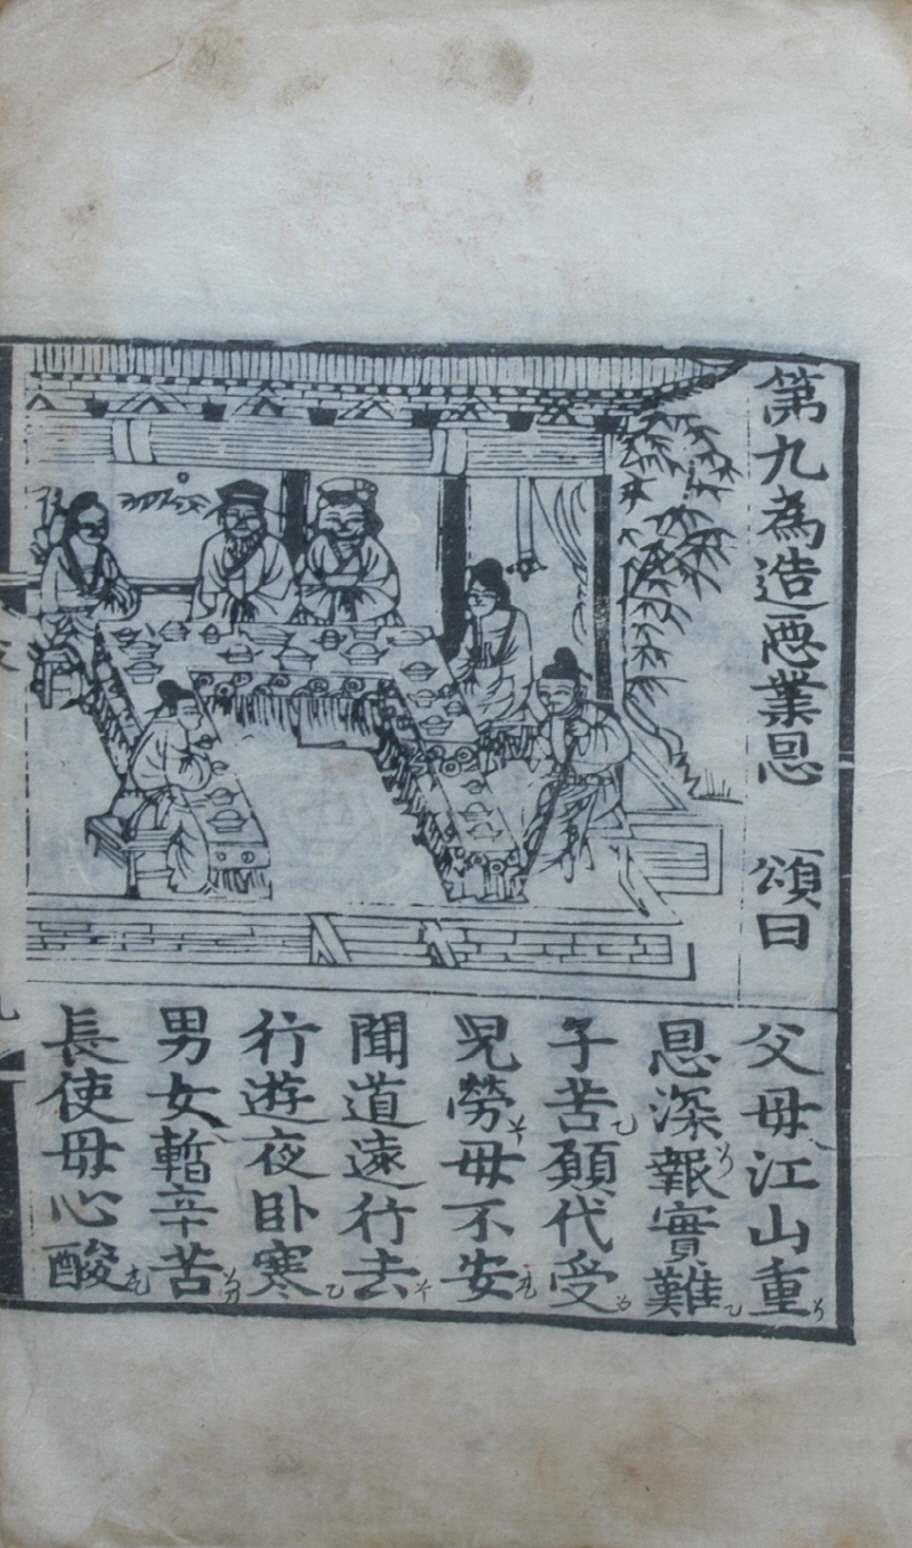 第九為造惡業恩 頌曰
父母江山重
恩深報實難
子苦願代受
兒勞母不安
聞道遠行去
行遊夜臥寒
男女暫辛苦
長使母心酸